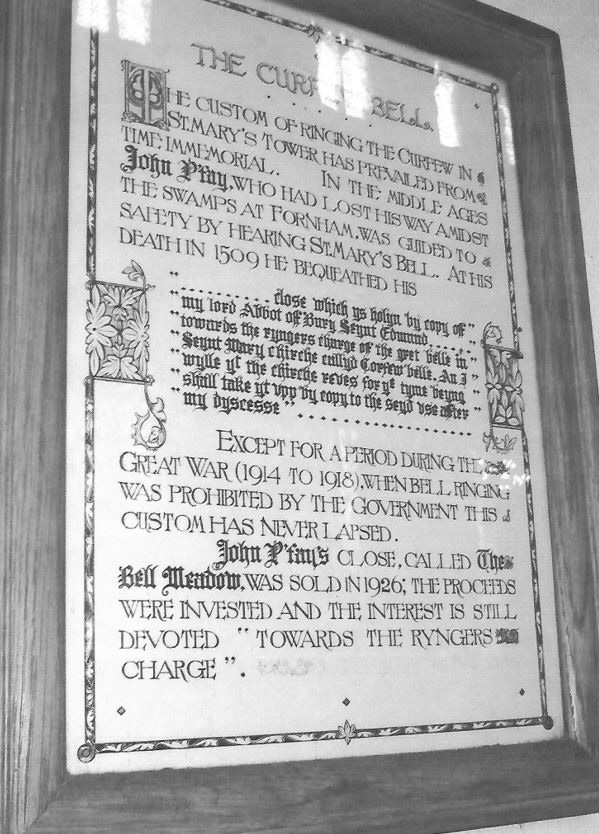 THE CURFEW BELL.
THE CUSTOM OF RINGING THE CURFEW IN
ST. MARY'S TOWER HAS PREVAILED FROM
TIME IMMEMORIAL. IN THE MIDDLE AGES
John P'fay, WHO HAD LOST HIS WAY AMIDST
THE SWAMPS AT FORNHAM, WAS GUIDED TO
SAFETY BY HEARING ST. MARY'S BELL. AT HIS
DEATH IN 1509 HE BEQUEATHED HIS
" .......... close which ys holyn by copy of "
" my lord Abbot off Bury Seynt Edmund ...... "
" towards the ryngers charge of the gret belle in "
" Seynt Mary chirche callyd Corfew belle. An I "
" wylle yt the chirche reves for ye tyme beyng "
" shall take yt vpp by copy to the seyd vse after "
" my dyscesse " ....................
EXCEPT FOR A PERIOD DURING THE
GREAT WAR (1914 TO 1918), WHEN BELL RINGING
WAS PROHIBITED BY THE GOVERNMENT THIS
CUSTOM HAS NEVER LAPSED.
John P'fay's CLOSE, CALLED The
Bell Meadow, WAS SOLD IN 1926; THE PROCEEDS
WERE INVESTED AND THE INTEREST IS STILL
DEVOTED " TOWARDS THE RYNGERS
CHARGE ".